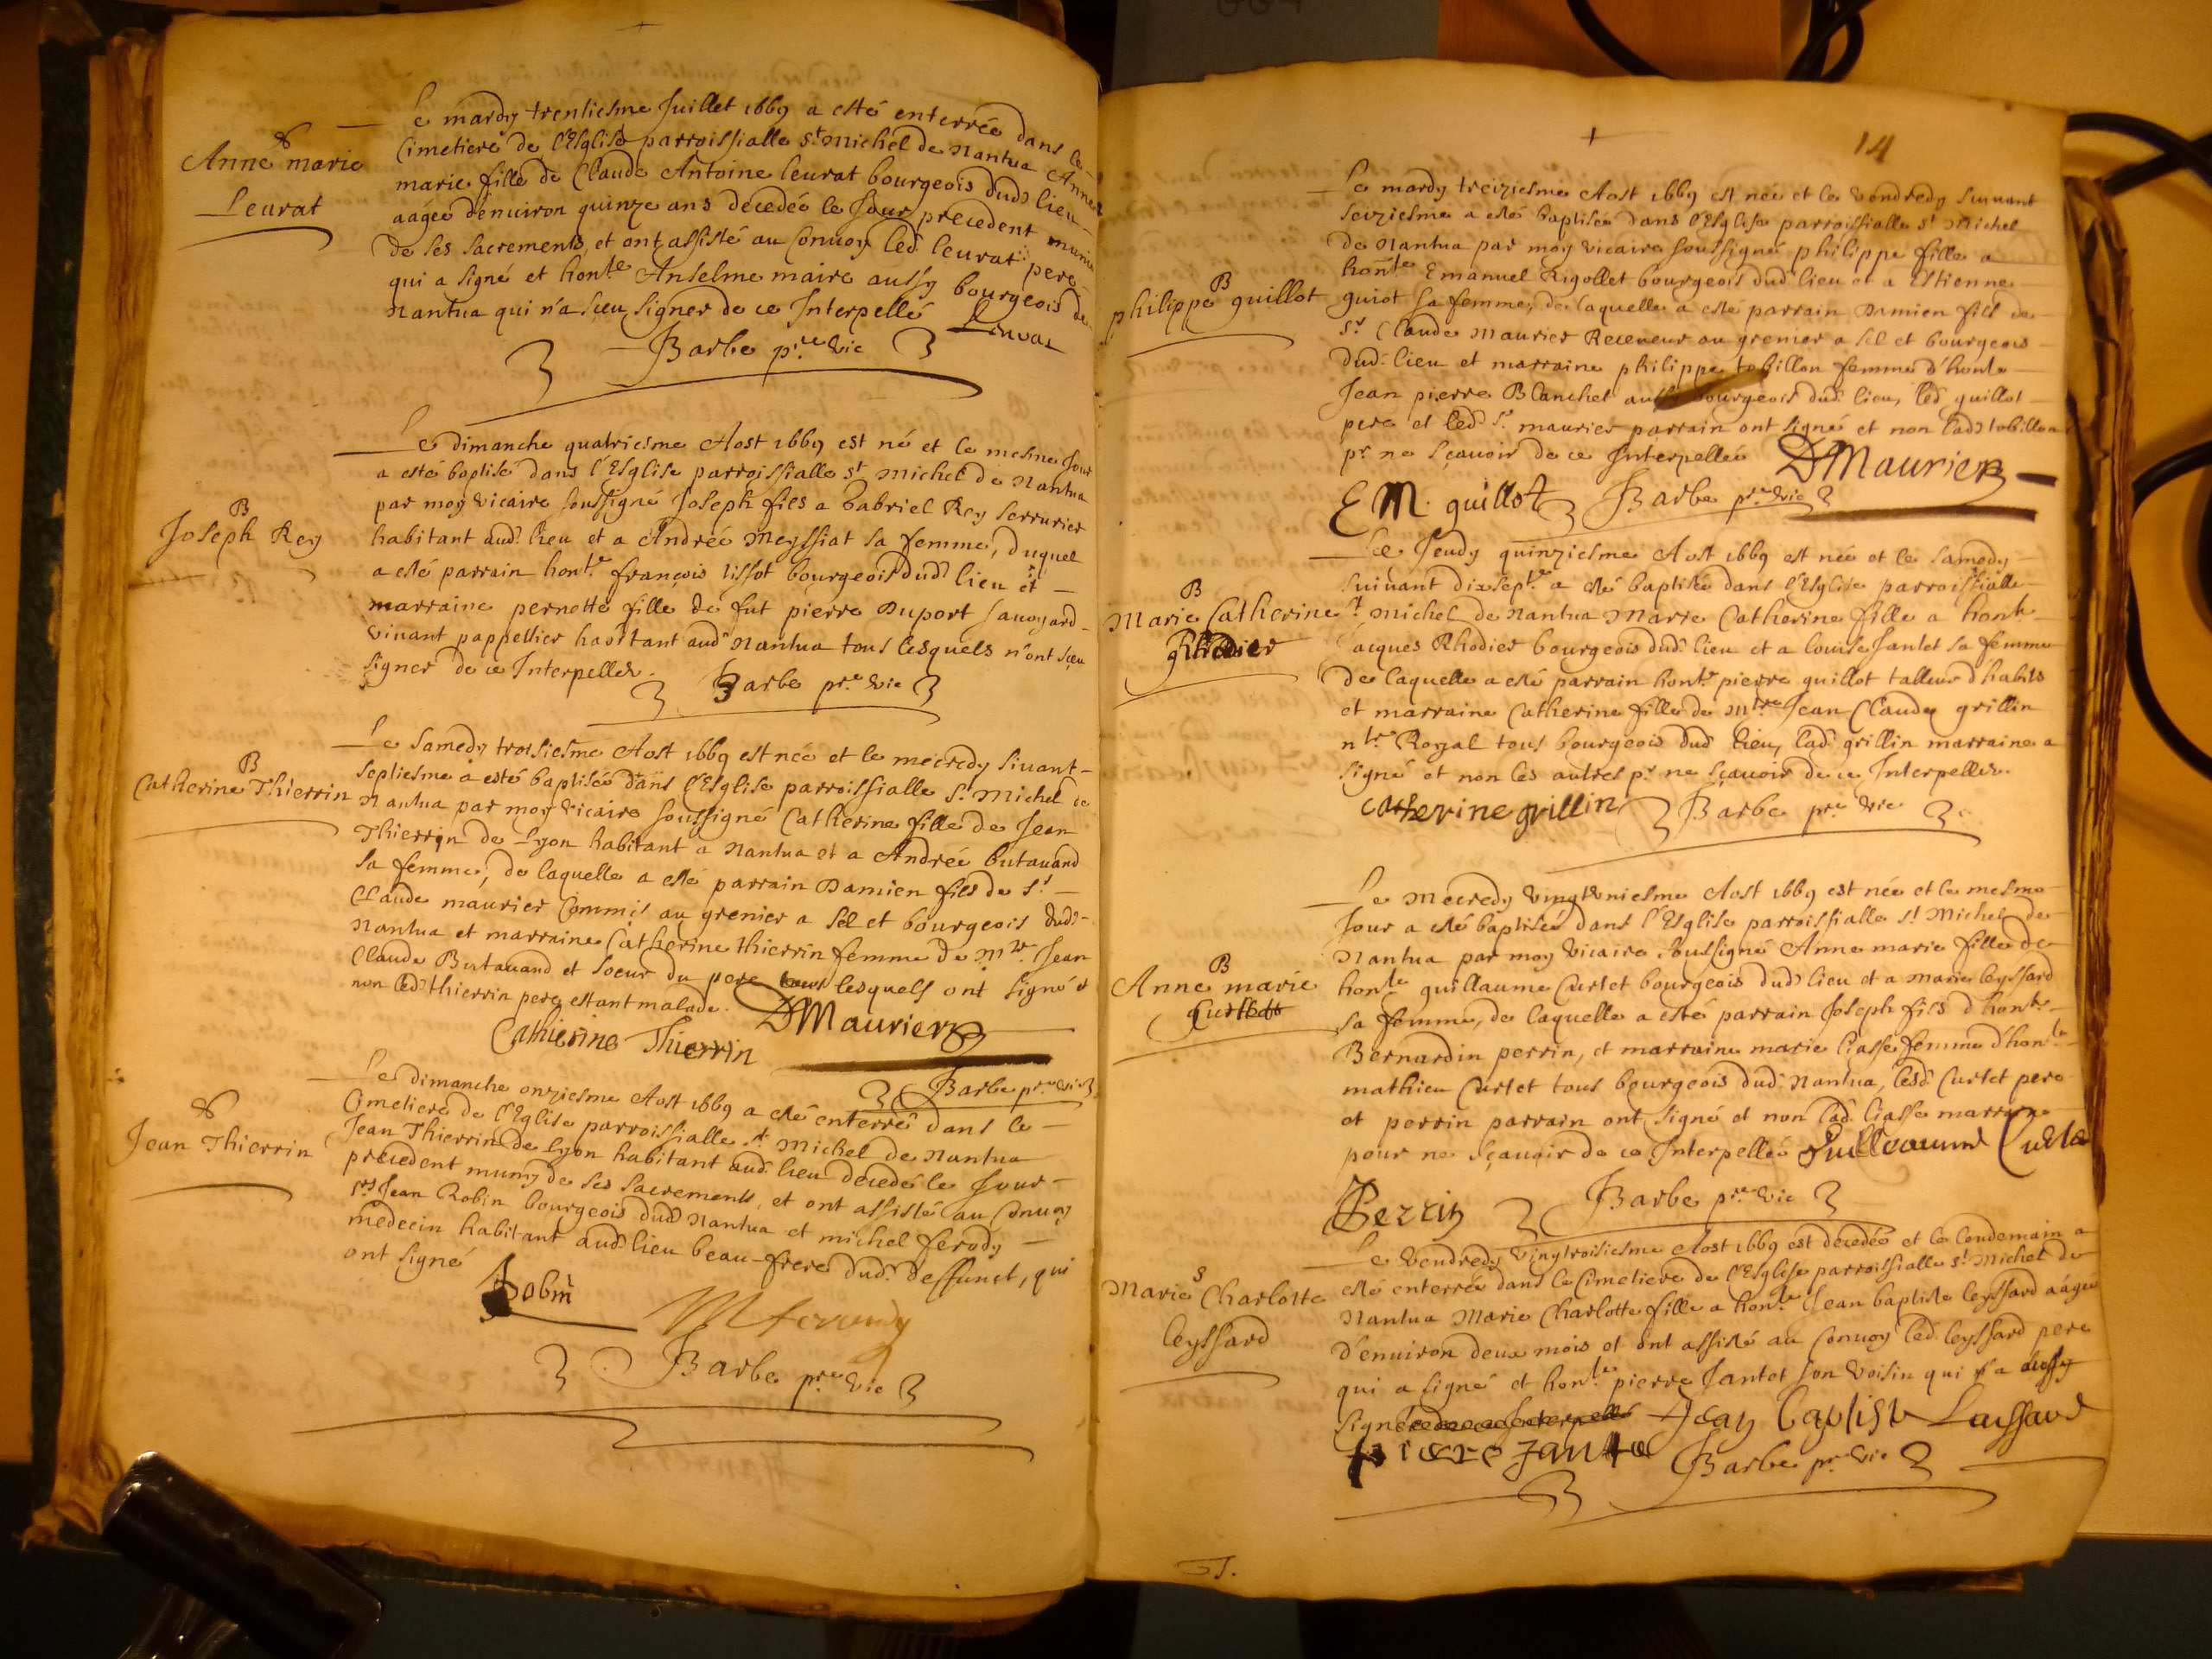 Anne marie
Leurat
Le mardy trentiesme Juillet 1669 a esté enterrée dans le
Cimetiere de l'Esglise parroissialle St Michel de Nantua Anne
marie fille de Claude Antoine leurat bourgeois dud lieu
aagée d'enuiron quinze ans decedée le Jour precedent munie
de ses sacrements, et ont assisté au Conuoy led. leurat pere
qui a signé et honle Anselme maire aussy bourgeois de
Nantua qui n'a sceu signer de ce Interpellé
Barbe pre vic
B
Joseph Rey
Le dimanche quatriesme Aost 1669 est né et le mesme Jour
a esté baptisé dans l'Esglise parroissialle St Michel de Nantua
par moy vicaire soussigné Joseph fils a Gabriel Rey serrurier
habitant aud. lieu et a Andrée Meyssiat sa femme, duquel
a esté parrain honle françois tissot bourgeois dud lieu et
marraine pernette fille de fut pierre Duport sauoyard
viuant pappellier habitant aud Nantua tous lesquels n'ont sceu
signer de ce Interpelles.
Barbe pre vic
B
Catherine Thierrin
Le samedy troisiesme Aost 1669 est née et le mecredy siuant
septiesme a esté baptisée dans l'Esglise parroissialle St Michel de
Nantua par moy vicaire soussigné Catherine fille de Jean
Thierrin de Lyon habitant a Nantua et a Andrée butauand
sa femme, de laquelle a esté parrain Damien fils de Sr
Claude maurier Commis au grenier a sel et bourgeois dud
Nantua et marraine Catherine thierrin femme de Mre Jean
Claude Butauand et soeur du pere tous lesquels ont signé et
non led thierrin pere estant malade.
DMaurier
Catherine Thierrin
Barbe pre vic
Jean Thierrin
Le dimanche onziesme Aost 1669 a esté enterré dans le
Cimetiere de l'Eglise parroissialle St Michel de Nantua
Jean Thierrin de Lyon habitant aud. lieu decedé le Jour
precedent muny de ses sacrements, et ont assisté au Conuoy
Srs Jean Robin bourgeois dud Nantua et michel ferody
medecin habitant aud lieu beau-frere dud. deffunct, qui
ont signé
Robin
Barbe pre vic
14
B
philippe guillot
Le mardy treiziesme Aost 1669 est née et le vendredy suiuant
seiziesme a esté baptisée dans l'Esglise parroissialle St Michel
de Nantua par moy vicaire soussigné philippe fille a
honle Emanuel Rigollet bourgeois dud lieu et a Estienne
guiot sa femme, de laquelle a esté parrain Damien fils de
Sr Claude maurier Receueur au grenier a sel et bourgeois
dud. lieu et marraine philippe tobillon femme d'honle
Jean pierre Blanchet aussi bourgeois dud. lieu, led guillot
pere et led Sr maurier parrain ont signé et non lad tobillon
pr ne sçauoir de ce Interpellée
DMaurier
EM. guillot
Barbe pre vic
B
Marie Catherine
Rhodier
Le Jeudy quinziesme Aost 1669 est née et le samedy
suiuant dixsepte a esté baptisée dans l'Esglise parroissialle
St Michel de Nantua Marie Catherine fille a honle
Jacques Rhodier bourgeois dud. lieu et a louise Jantet sa femme
de laquelle a esté parrain honle pierre guillot talleur d'habits
et marraine Catherine fille de Mtre Jean Claude grillin
nre Royal tous bourgeois dud lieu, lad grillin marraine a
signé et non les autres pr ne sçauoir de ce Interpelles.
catherine grillin
Barbe pre vic
B
Anne marie
Curtet
Le mecredy vingtvniesme Aost 1669 est née et le mesme
Jour a esté baptisée dans l'Esglise parroissialle St Michel de
Nantua par moy vicaire soussigné Anne marie fille de
honle guillaume Curtet bourgeois dud lieu et a marie leyssard
sa femme, de laquelle a esté parrain Joseph fils d'honle
Bernardin perrin, et marraine marie liasse femme d'honle
mathieu Curtet tous bourgeois dud. Nantua, lesd. Curtet pere
et perrin parrain ont signé et non lad. liasse marraine
pour ne sçauoir de ce Interpellée Guilleaume Curtet
Perrin
Barbe pre vic
S
Marie Charlotte
leyssard
Le vendredy vingtroisiesme Aost 1669 est decedée et le lendemain a
esté enterrée dans le Cimetiere de l'Esglise parroissialle St Michel de
Nantua Marie Charlotte fille a honle Jean baptiste leyssard aagée
d'enuiron deux mois et ont assisté au Conuoy led. leyssard pere
qui a signé et honle pierre Jantet son voisin qui a aussy
signé Jean Baptiste Laissard
pierre Jantet
Barbe pre vic